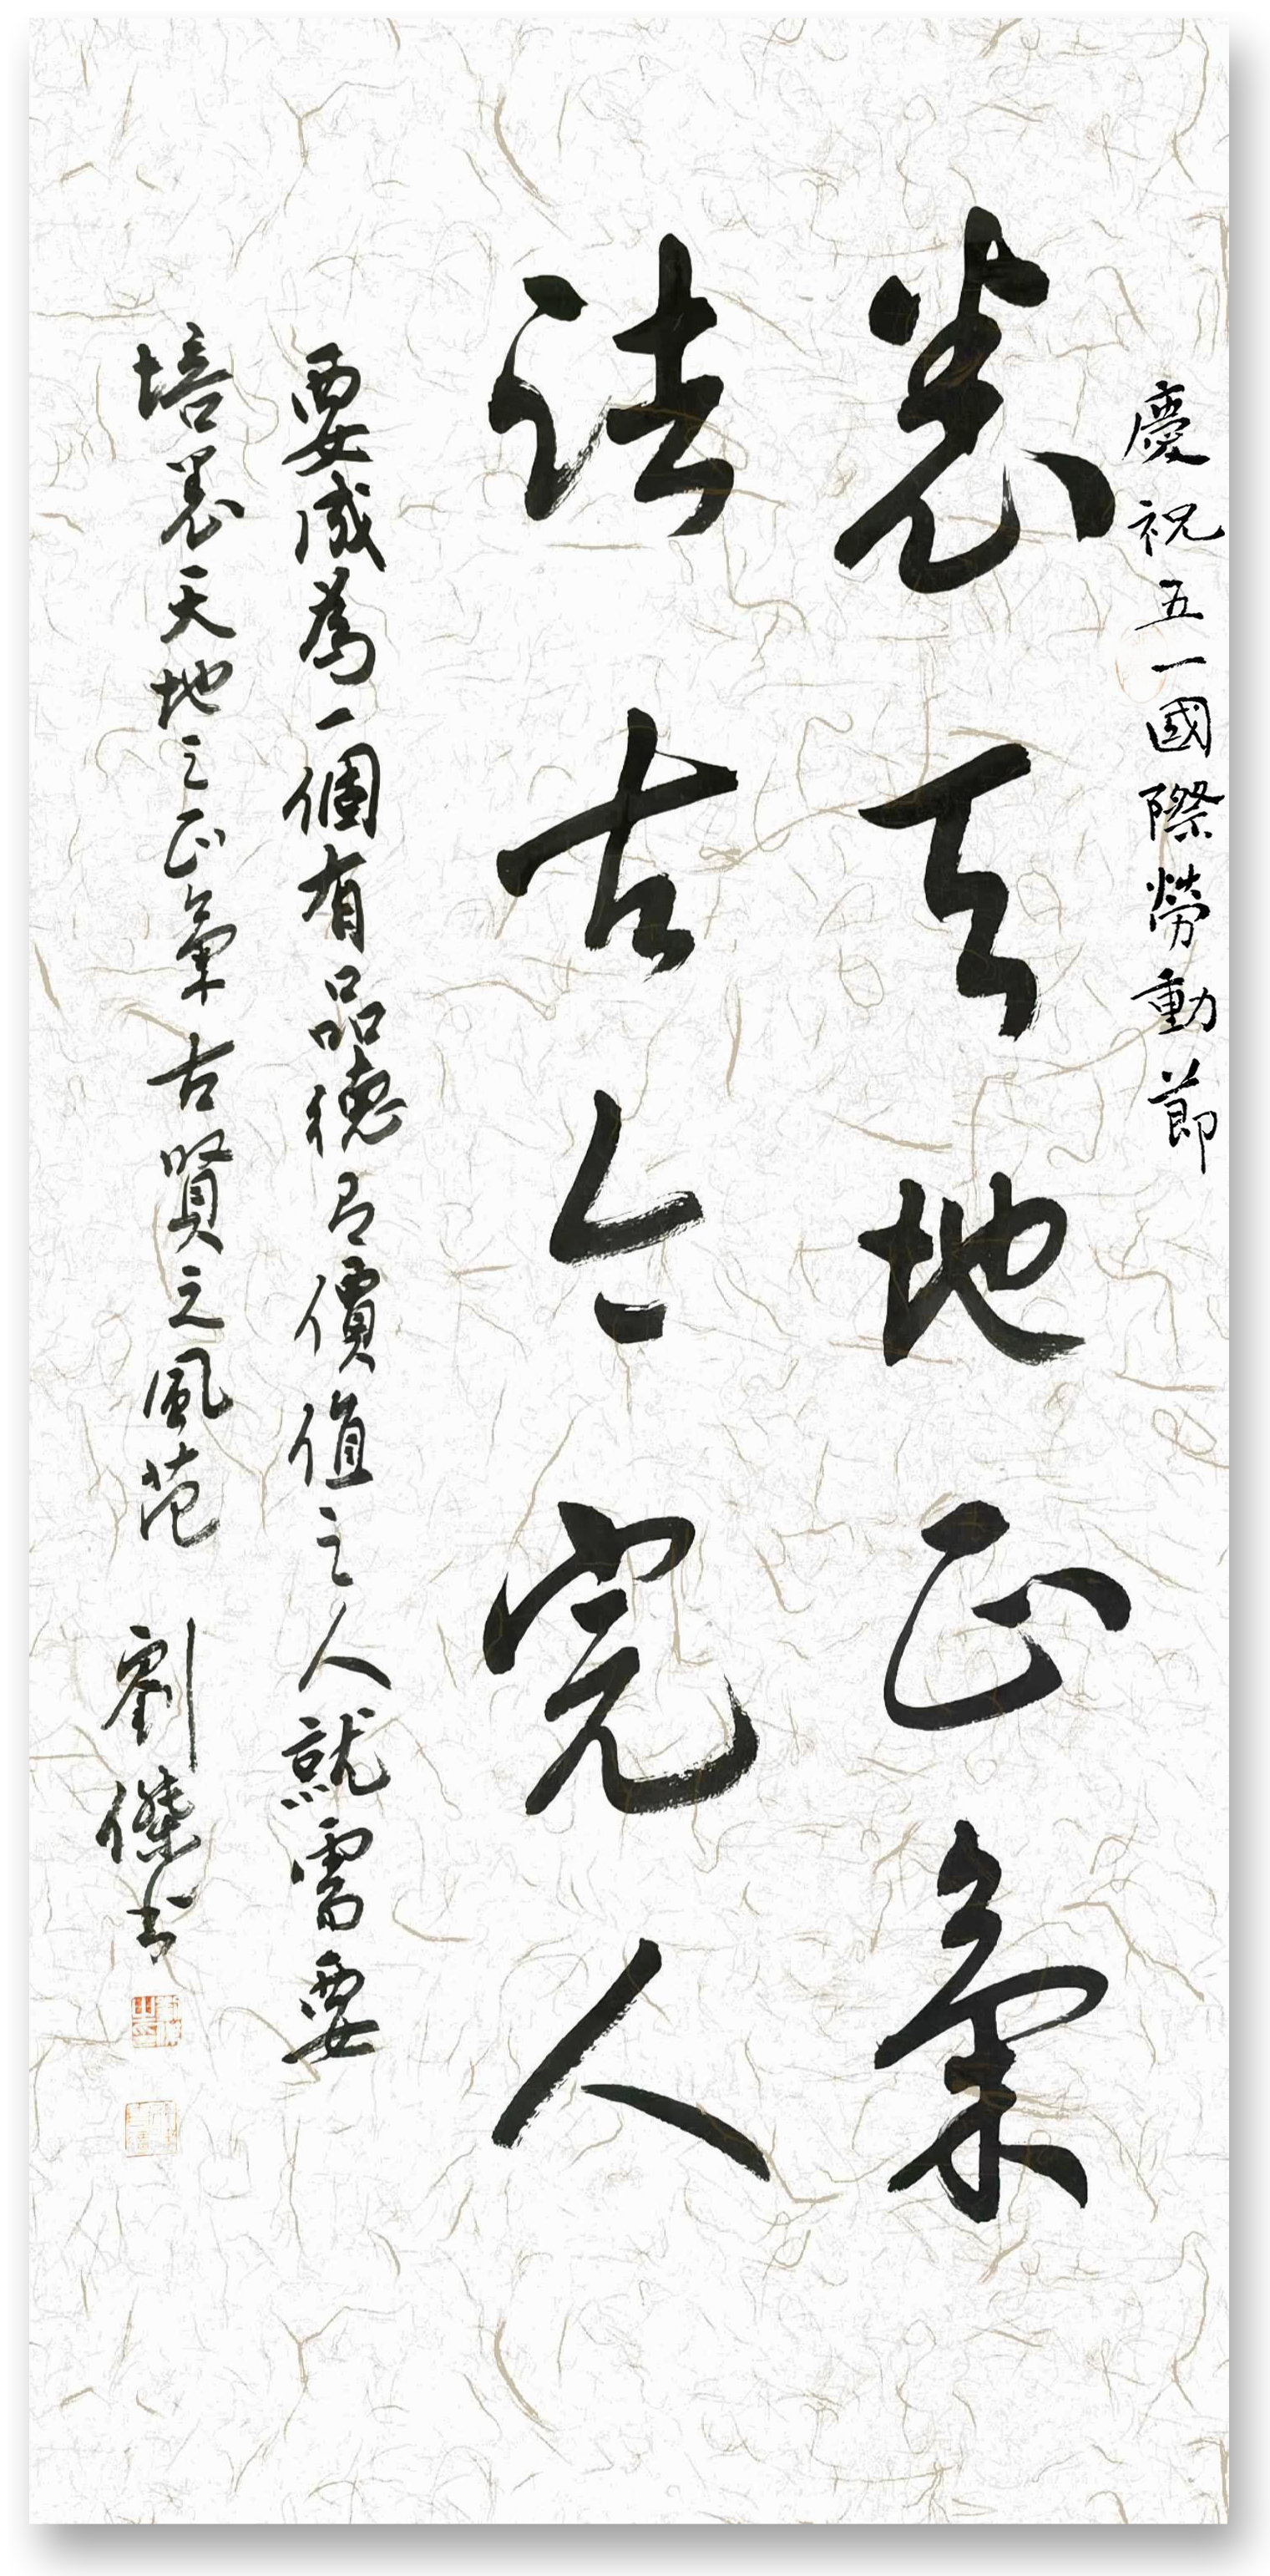 慶祝五一國際勞動節
養天地正氣
法古今完人
要成為一個有品德有價值之人就需要
培養天地之正氣古賢之風范
劉傑书